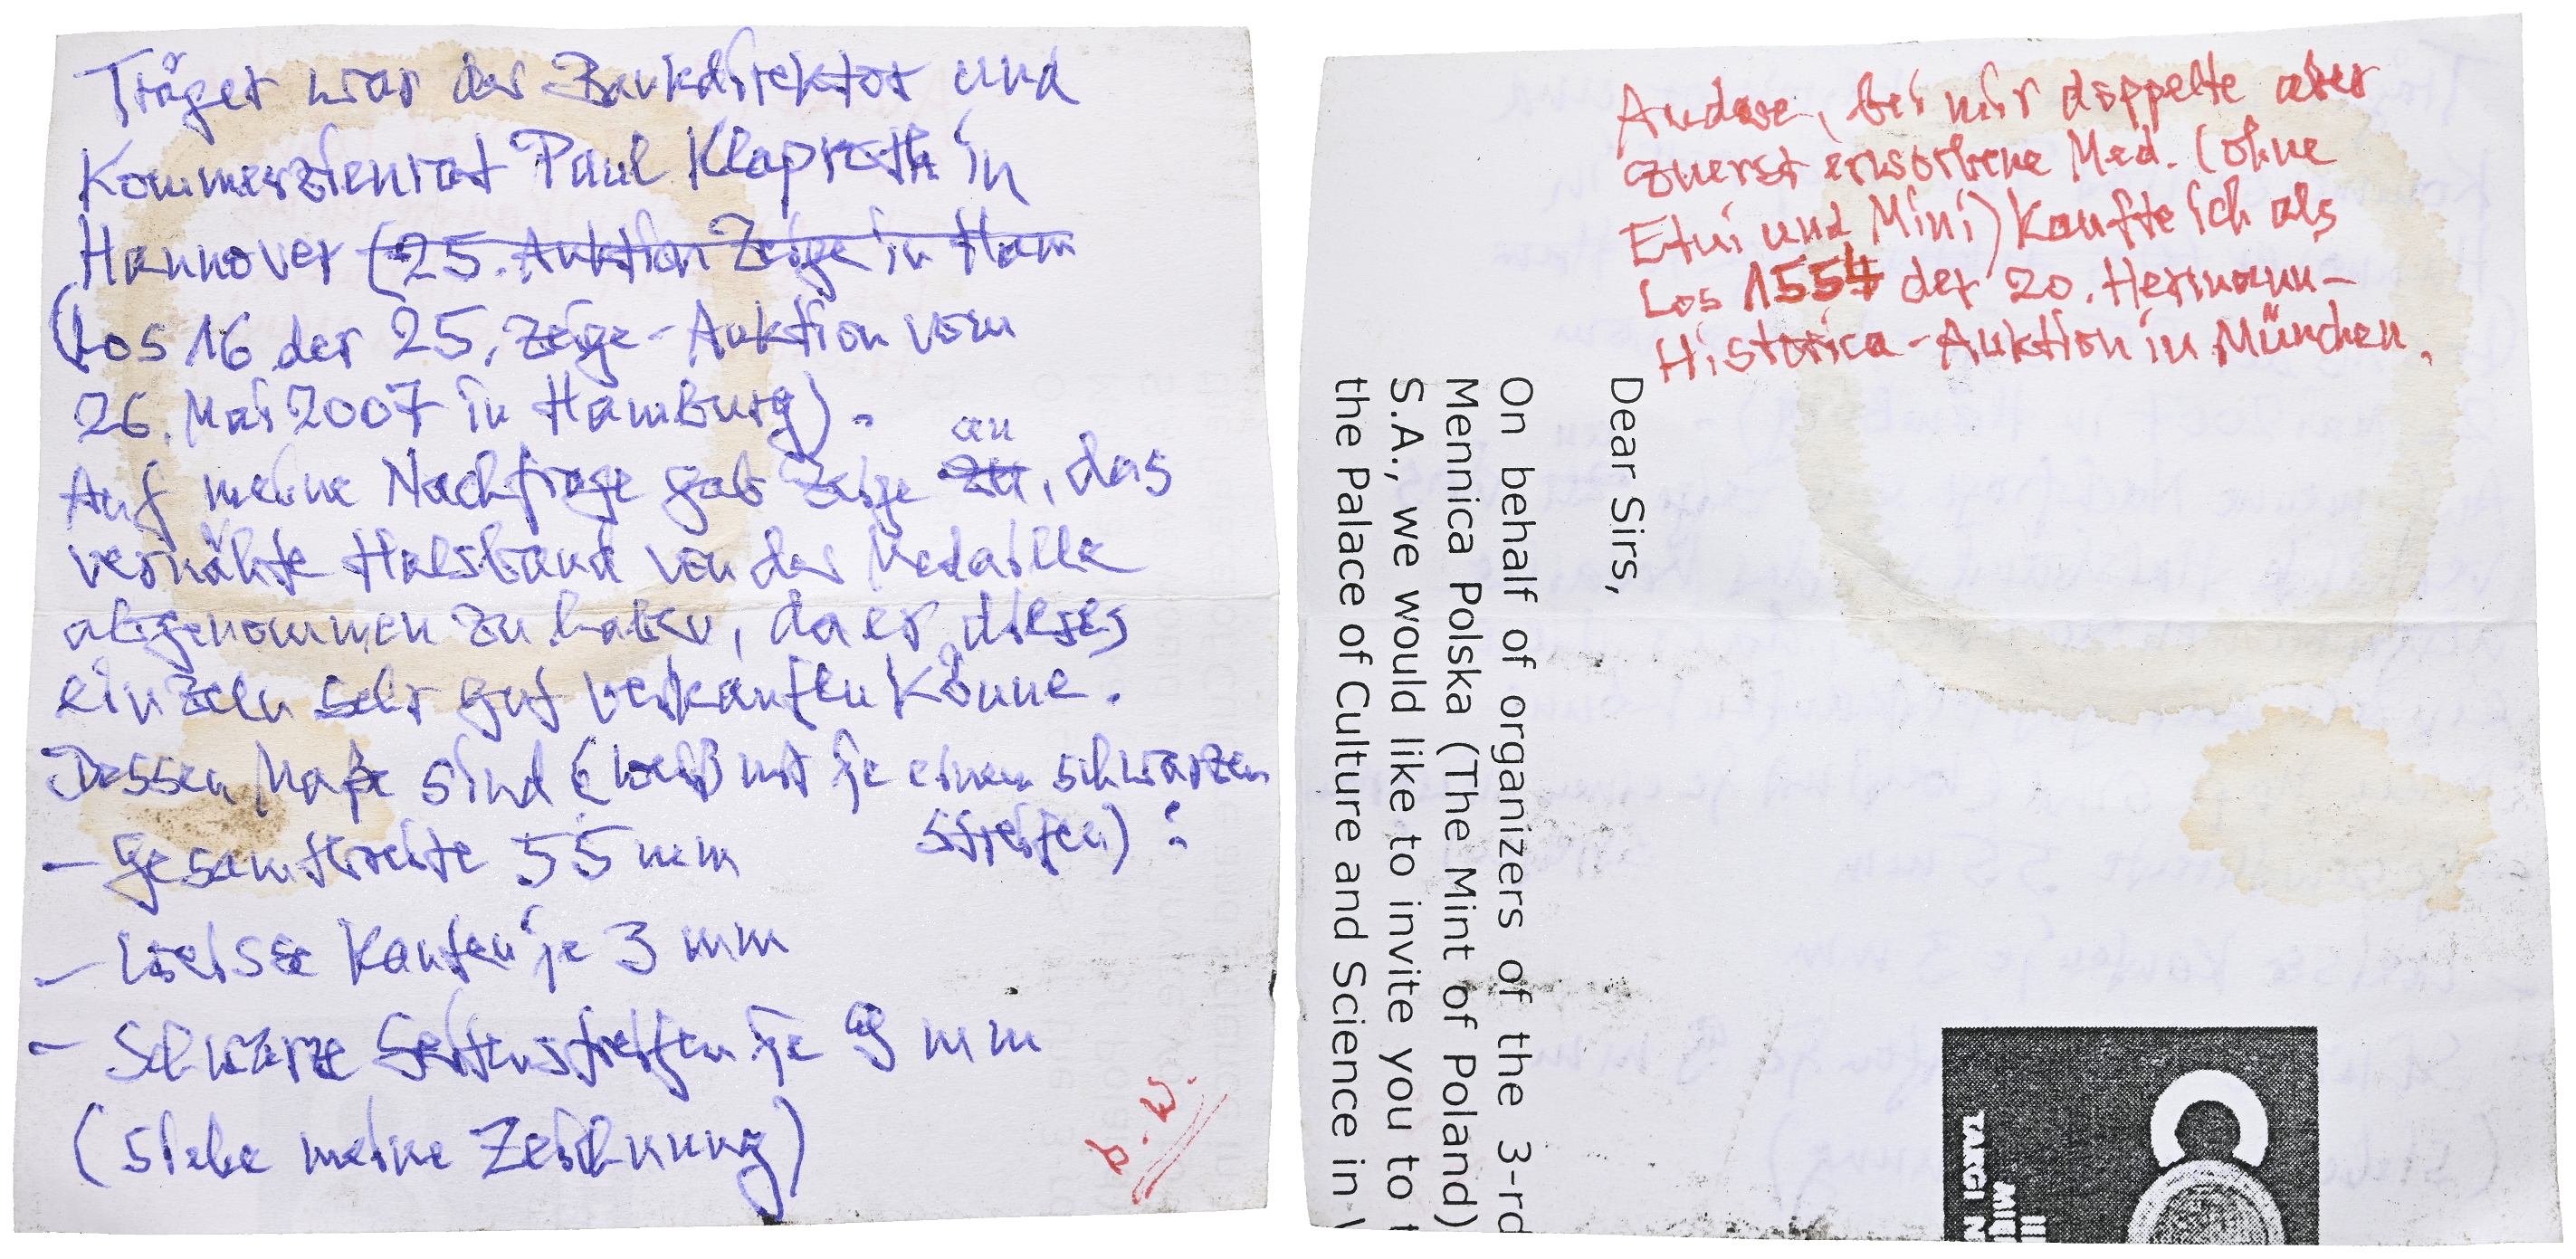 Träger war der Bankdirektor und
Kommerzienrat Paul Klaproth in
Hannover (25. Auktion Zeige in Ham
(Los 16 der 25. Zeige-Auktion vom
26. Mai 2007 in Hamburg).
Auf meine Nachfrage gab Zeige an, das
vernähte Halsband von der Medaille
abgenommen zu haben, da er dieses
einzeln sehr gut verkaufen könne.
Dessen Maße sind (weiß mit je einem schwarzen
Streifen):
- Gesamtbreite 55 mm
- weisse Kanten je 3 mm
- Schwarze Seitenstreifen je 9 mm
(siehe meine Zeichnung)
b.w.
Andere, bei mir doppelte aber
zuerst erworbene Med. (ohne
Etui und Mini) kaufte ich als
Los 1554 der 20. Hermann-
Historica-Auktion in München.
Dear Sirs,
On behalf of organizers of the 3-rd
Mennica Polska (The Mint of Poland)
S.A., we would like to invite you to
the Palace of Culture and Science in
TARGI